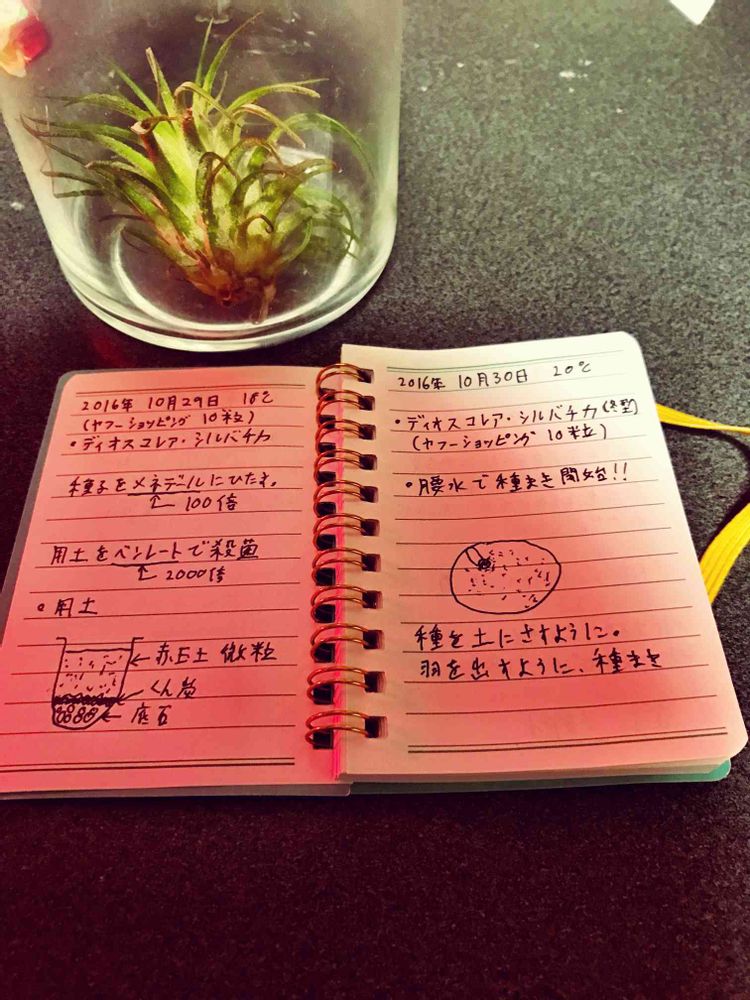 2016年 10月29日 18℃
(ヤフーショッピング 10粒)
・ディオスコレア・シルバチカ
種子をメネデールにひたす。
↑ 100倍
用土をベンレートで殺菌
↑ 2000倍
・用土
←赤玉土 微粒
←くん炭
←底石
2016年 10月30日 20℃
・ディオスコレア・シルバチカ(冬型)
(ヤフーショッピング 10粒)
・腰水で種まき開始!!
種を土にさすように。
羽を出すように、種まき